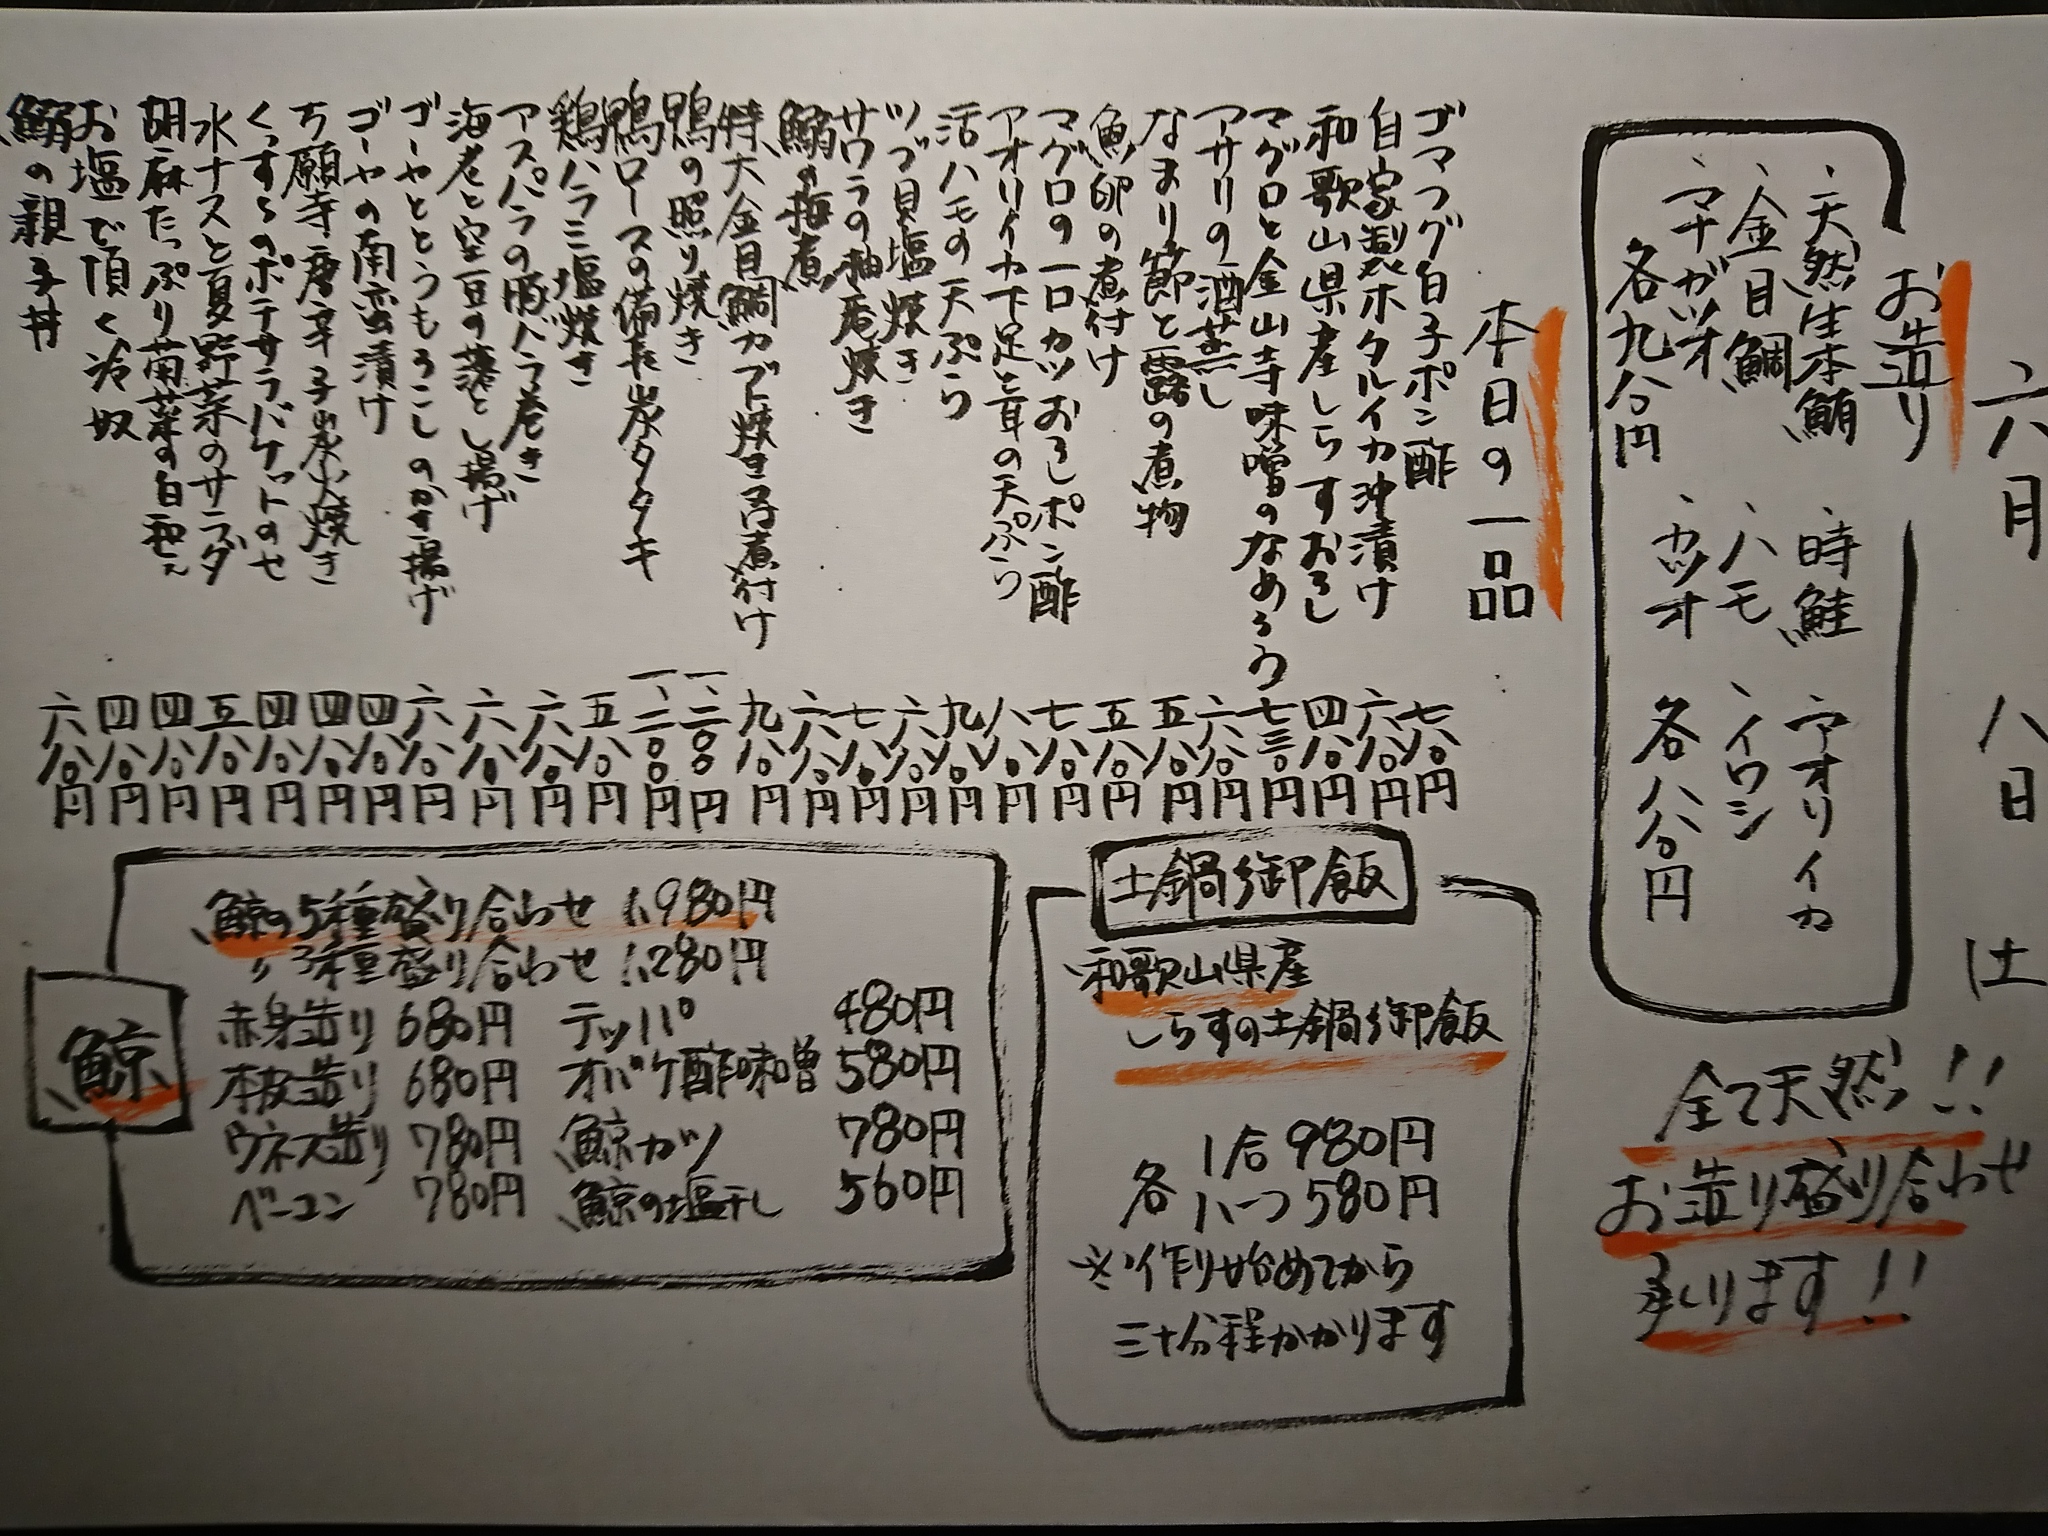 六月 八日 土
お造り
、天然生本鮪 、時鮭 、アオリイカ
、金目鯛 、ハモ 、イワシ
、マナガツオ 、カツオ
各九八〇円 各八八〇円
全て天然!!
お造り盛り合わせ
承ります!!
本日の一品
ゴマフグ白子ポン酢 七八〇円
自家製ホタルイカ沖漬け 六八〇円
和歌山県産しらすおろし 四八〇円
マグロと金山寺味噌のなめろう 七三〇円
アサリの酒蒸し 六八〇円
なまり節と露の煮物 五八〇円
魚卵の煮付け 五八〇円
マグロの一口カツおろしポン酢 七八〇円
アオリイカ下足と耳の天ぷら 八八〇円
活ハモの天ぷら 九八〇円
ツブ貝塩焼き 六八〇円
サワラの柚庵焼き 七八〇円
鰯の梅煮 六八〇円
特大金目鯛カブト焼き又は煮付け 九八〇円
鴨の照り焼き 一、二〇〇円
鴨ロースの備長炭タタキ 一、二〇〇円
鶏ハラミ塩焼き 五八〇円
アスパラの豚バラ巻き 六八〇円
海老と空豆の落とし揚げ 六八〇円
ゴーヤととうもろこしのかき揚げ 六八〇円
ゴーヤの南蛮漬け 四八〇円
万願寺唐辛子炭火焼き 四八〇円
くっすらのポテサラバケットのせ 四八〇円
水ナスと夏野菜のサラダ 五八〇円
胡麻たっぷり菊菜の白和え 四八〇円
お塩で頂く冷奴 四八〇円
鰯の親子丼 六八〇円
土鍋御飯
、和歌山県産
しらすの土鍋御飯
各 1合 980円
ハーフ 580円
※作り始めてから
三十分程かかります
鯨
鯨の5種盛り合わせ 1,980円
〃 3種盛り合わせ 1,280円
赤身造り 680円 テッパ 480円
本皮造り 680円 オバケ酢味噌 580円
ウネス造り 780円 鯨カツ 780円
ベーコン 780円 鯨の塩干し 560円